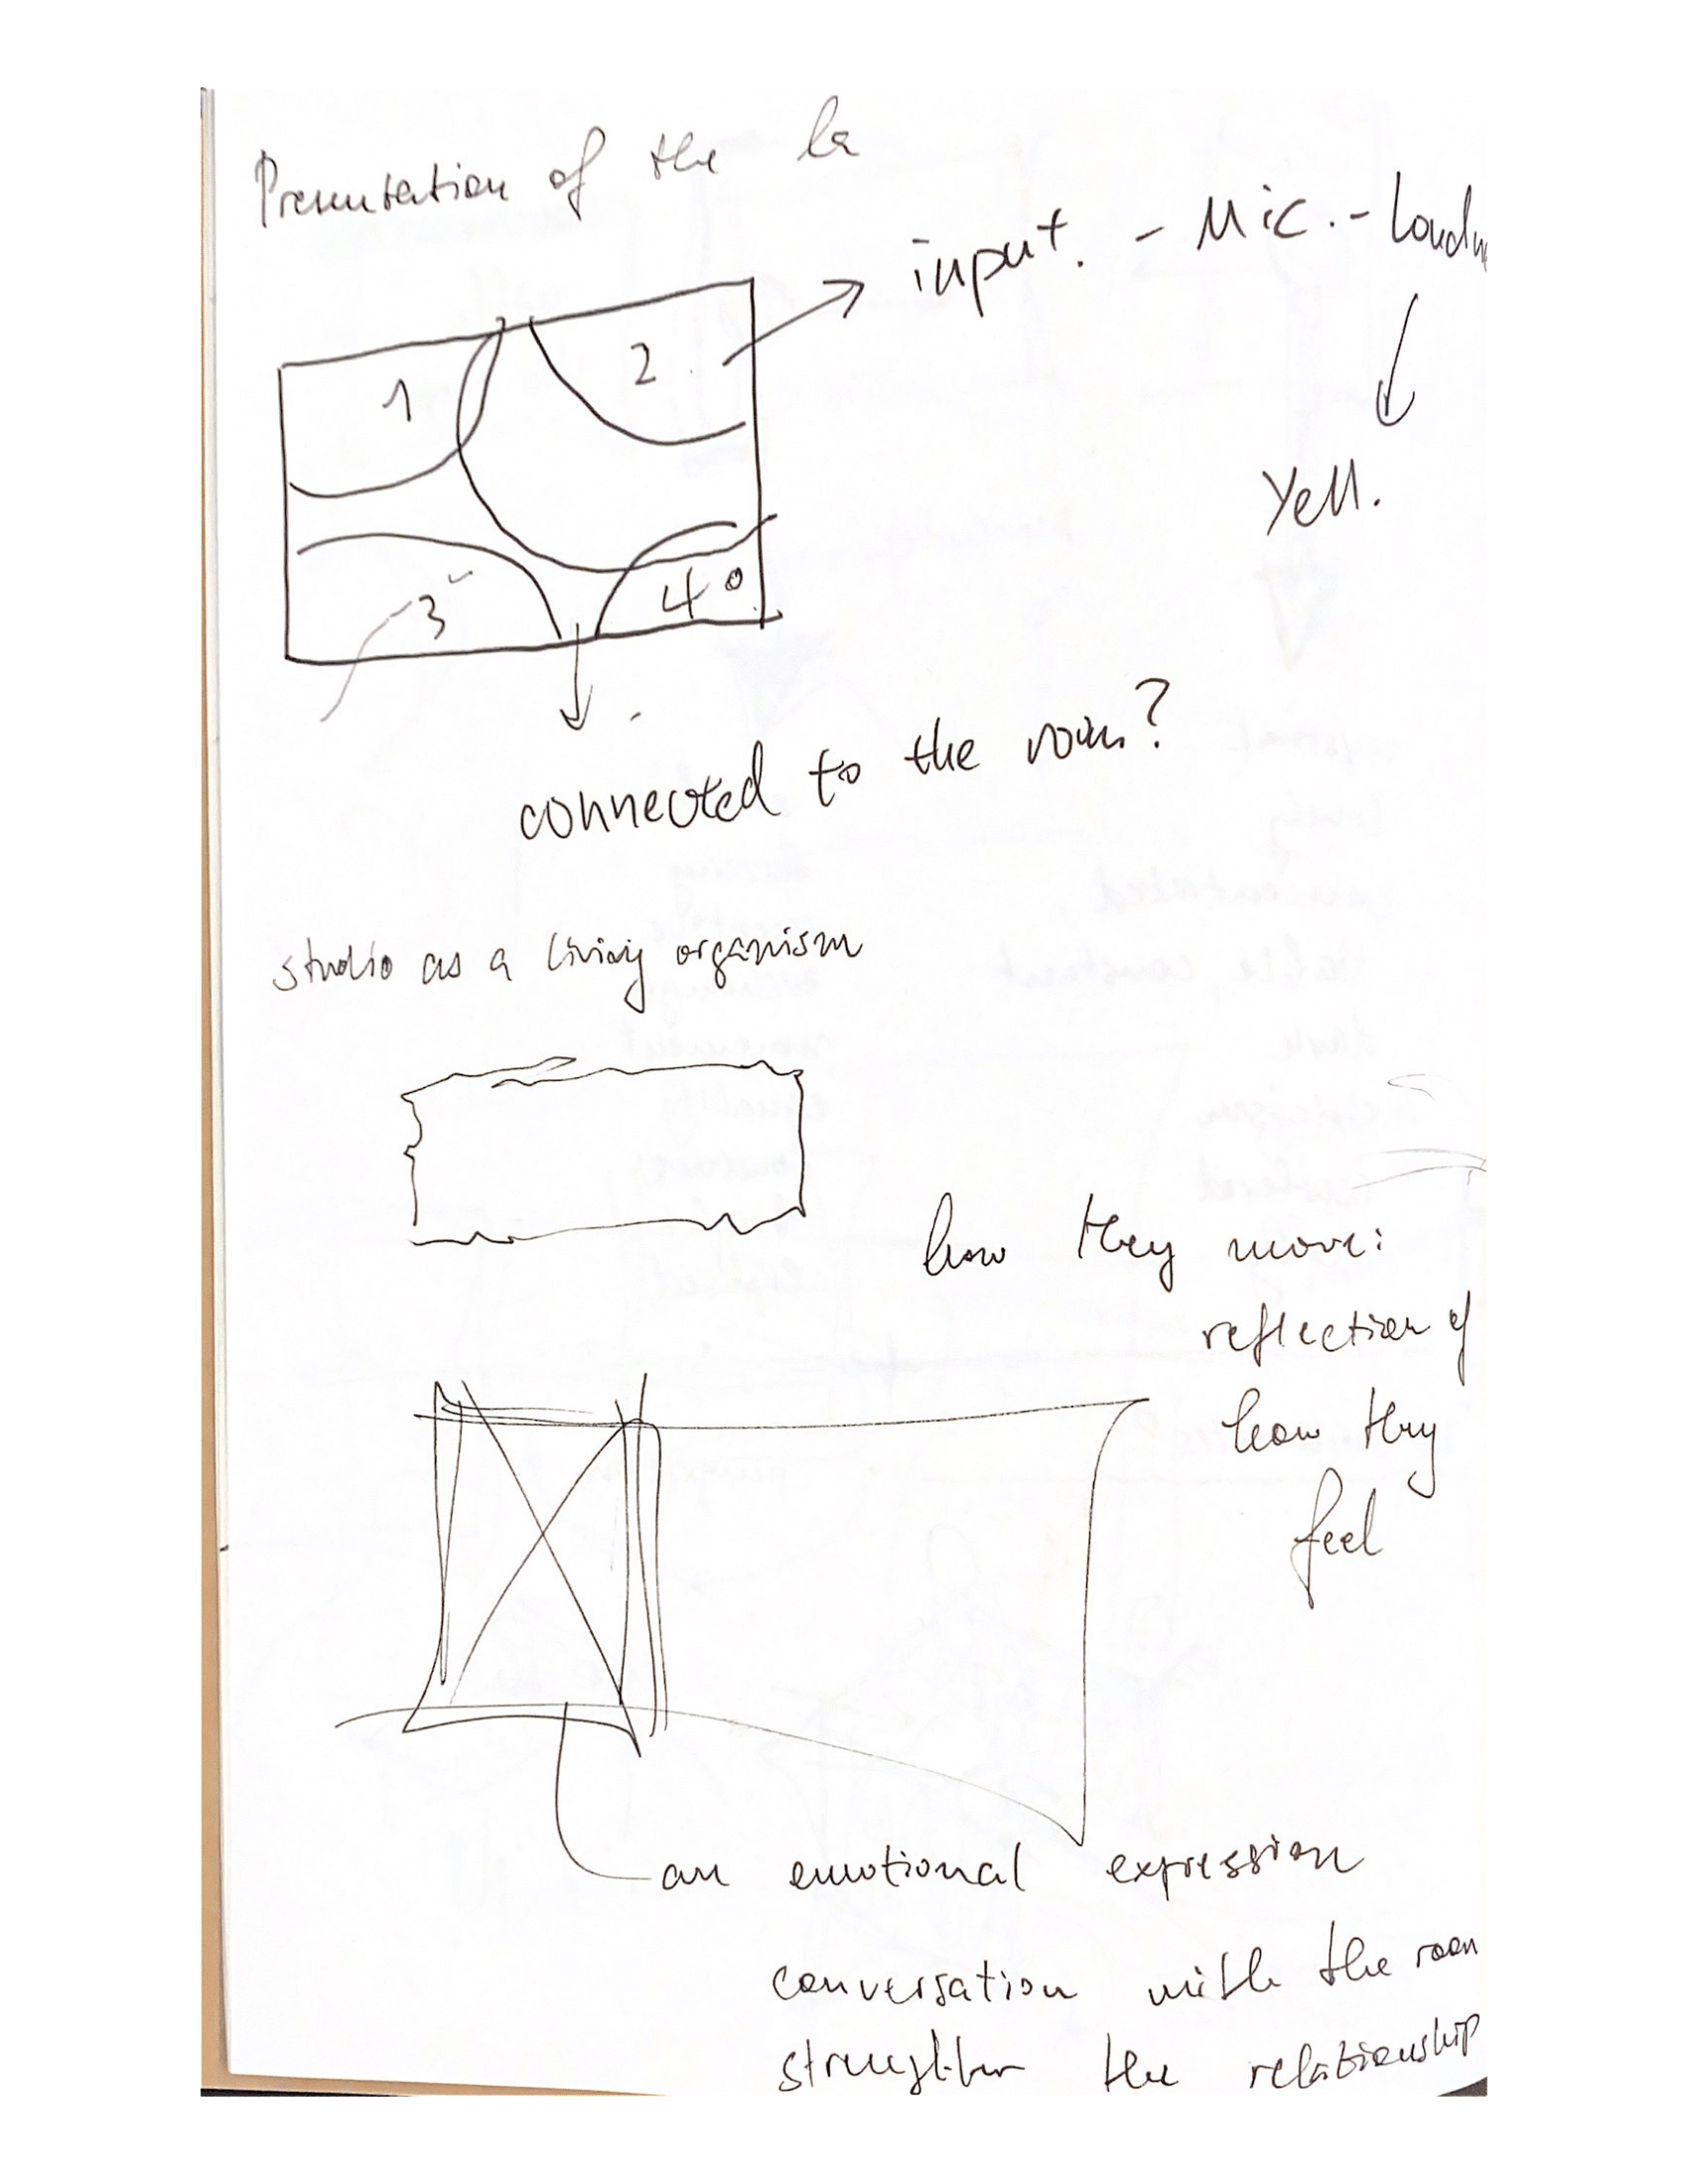 Presentation of the la
input. - Mic. - Loudn
1
2
Yell.
3
4
connected to the room?
studio as a living organism
how they move:
reflection of
how they
feel
an emotional expression
conversation with the room
strengthen the relationship